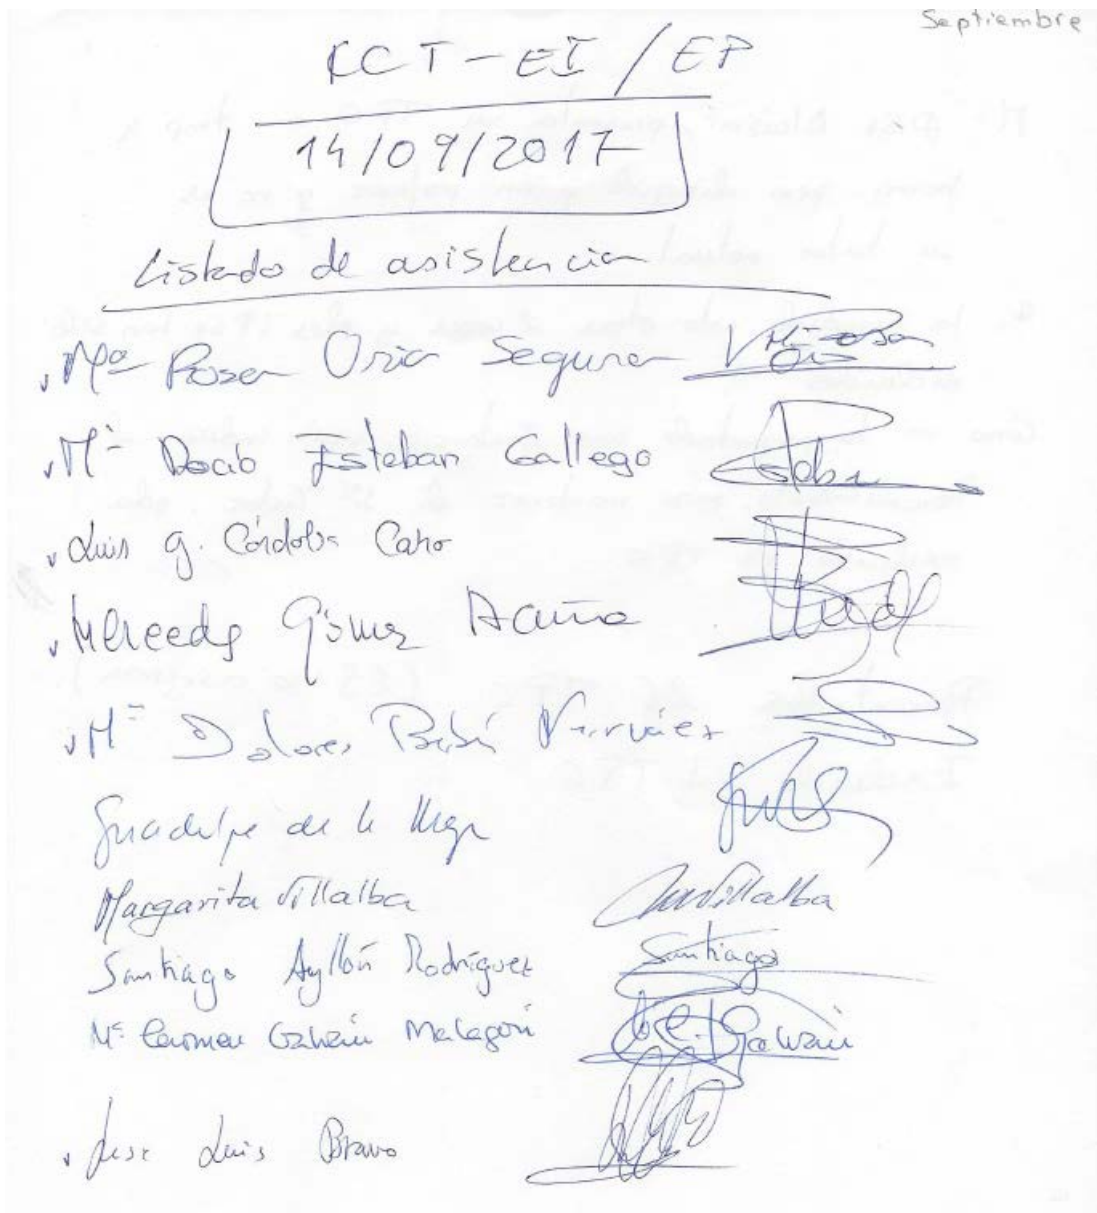 Septiembre
CCT-EI/EP
14/09/2017
Listado de asistencia
Mª Rosa Oria Segura Mª Rosa Oria
Mª Rocío Esteban Gallego Esteban
Luis G. Córdoba Caro
Mercedes Gómez Acuña
Mª Dolores
Guadalupe de la
Margarita Villalba Villalba
Santiago Ayllón Rodríguez Santiago
Mª Carmen Galván Malagón Galván
Jose Luis Bravo